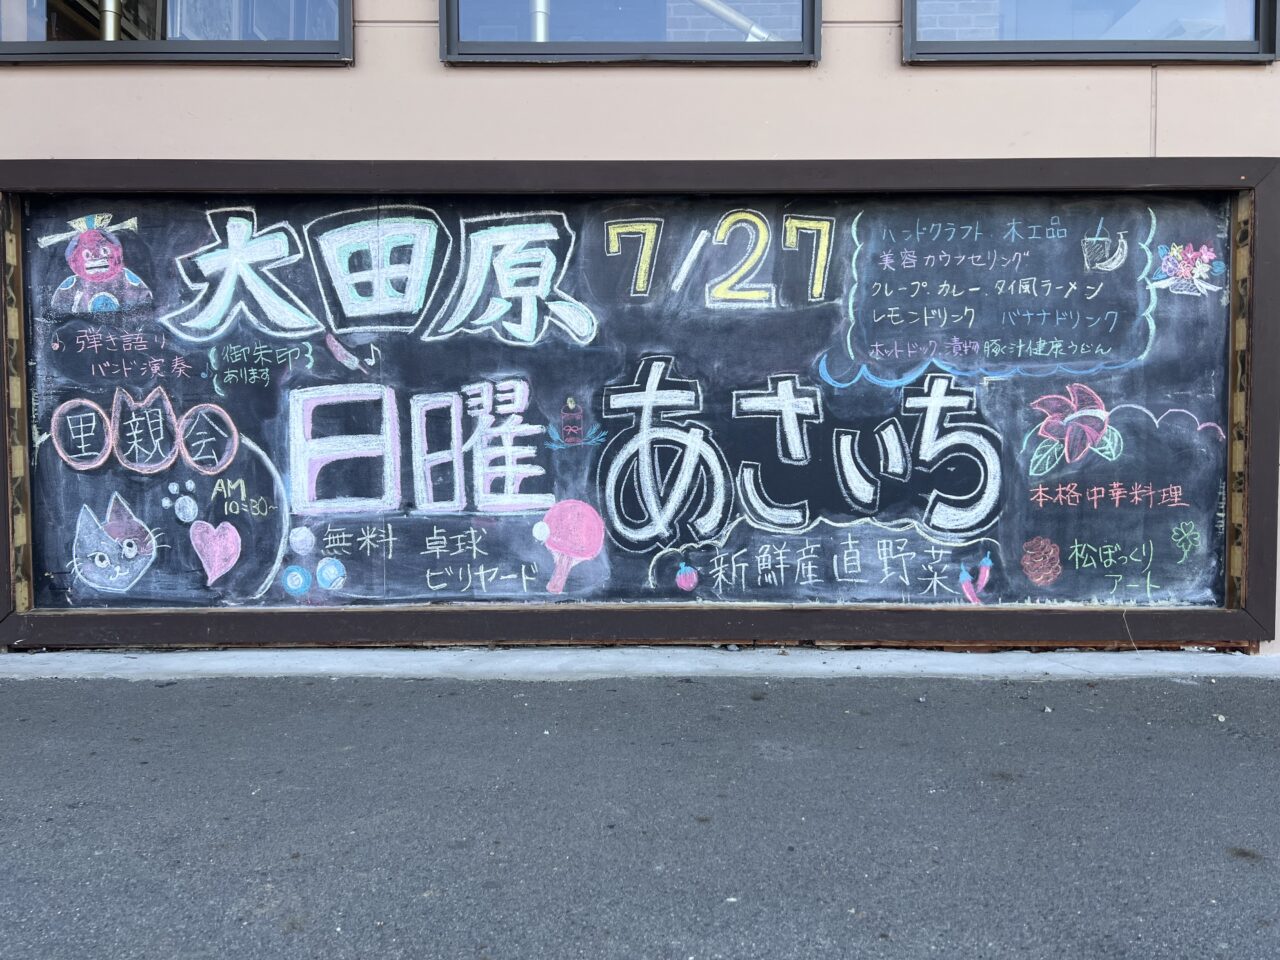 大田原 7/27
日曜 あさいち
ハンドクラフト、木工品
美容カウンセリング
クレープ カレー、タイ風ラーメン
レモンドリンク バナナドリンク
ホットドック 漬物 豚汁 健康うどん
♪弾き語り
バンド演奏♪
御朱印
あります
里親会
AM
10:30~
無料 卓球
ビリヤード
新鮮産直野菜
本格中華料理
松ぼっくり
アート